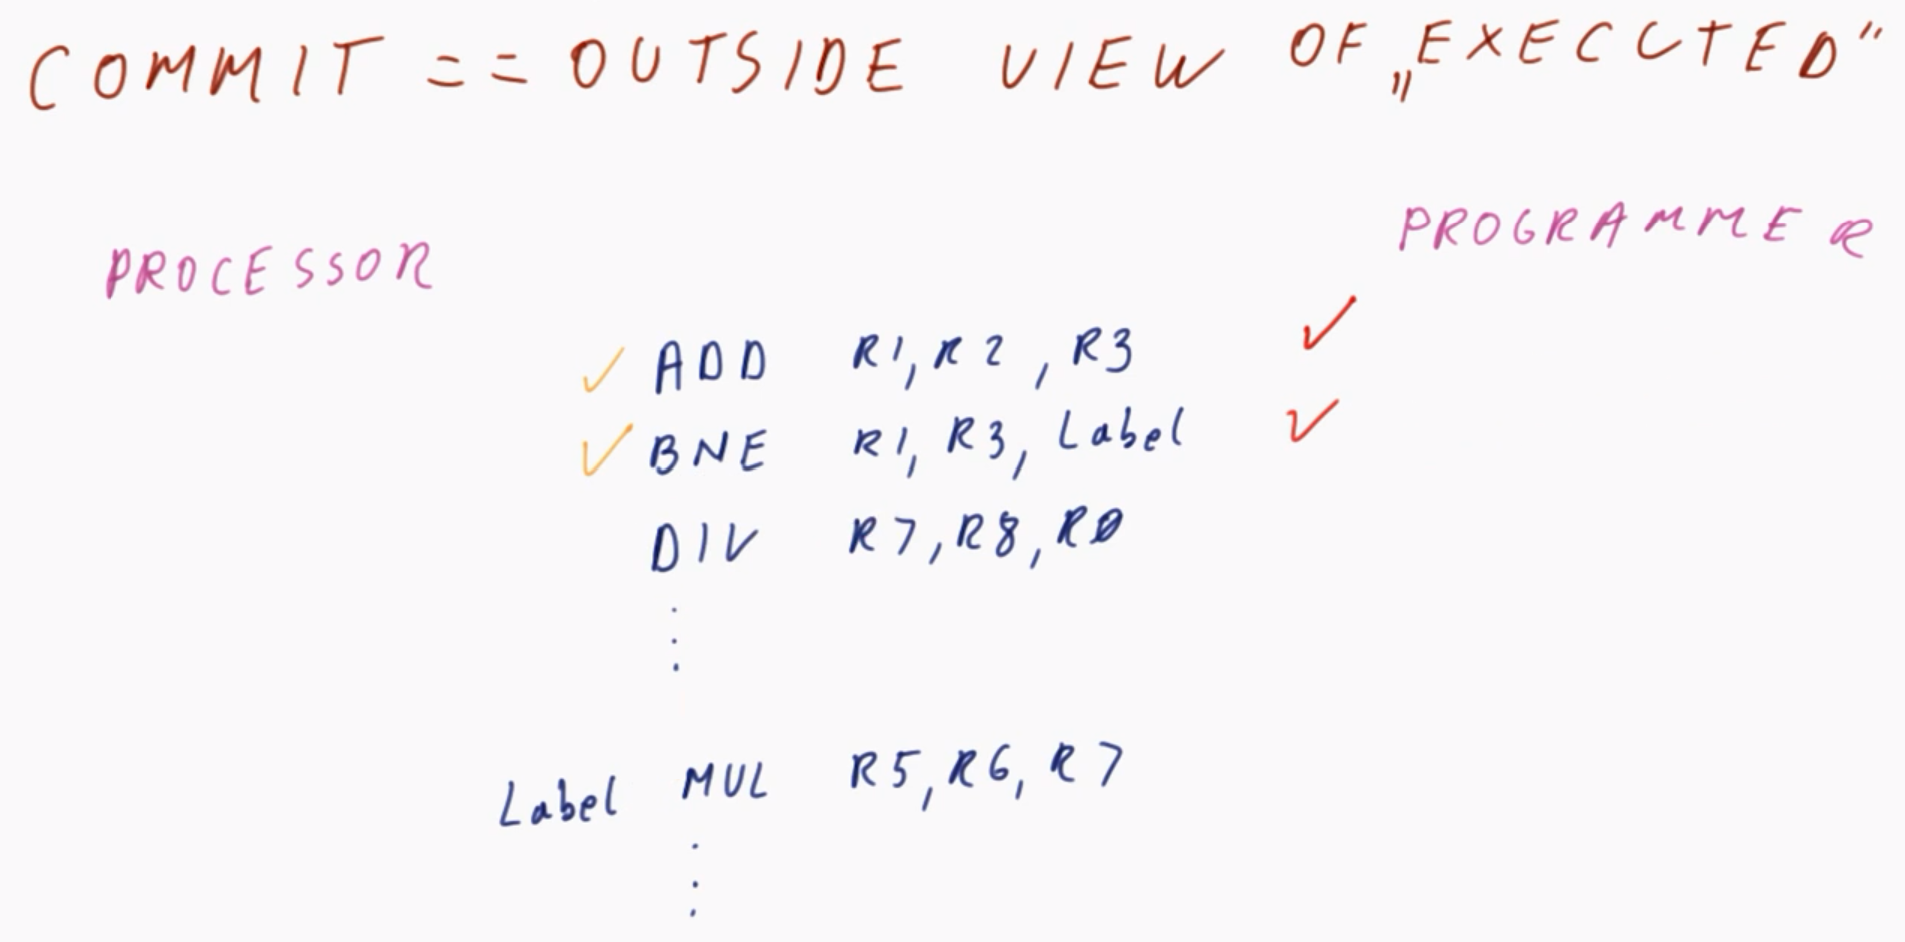 COMMIT == OUTSIDE VIEW OF „EXECUTED"
PROCESSOR PROGRAMMER
✓ ADD R1, R2, R3 ✓
✓ BNE R1, R3, Label ✓
DIV R7, R8, R0
⋮
Label MUL R5, R6, R7
⋮